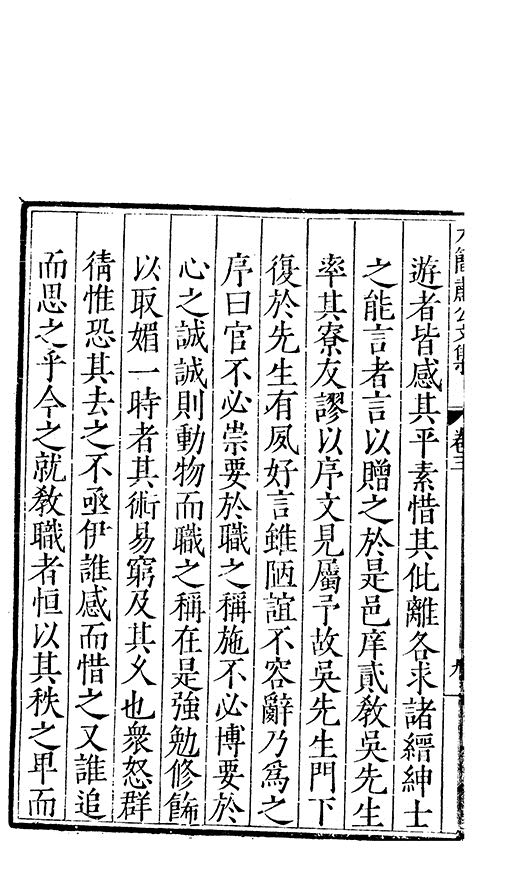 卷三
遊者皆感其平素惜其仳離各求諸縉紳士
之能言者言以贈之於是邑庠貳教吳先生
率其寮友謬以序文見屬予故吳先生門下
復於先生有夙好言雖陋誼不容辭乃爲之
序曰官不必崇要於職之稱施不必博要於
心之誠誠則動物而職之稱在是強勉修餙
以取媚一時者其術易窮及其久也衆怒群
猜惟恐其去之不亟伊誰感而惜之又誰追
而思之乎今之就教職者恒以其秩之卑而